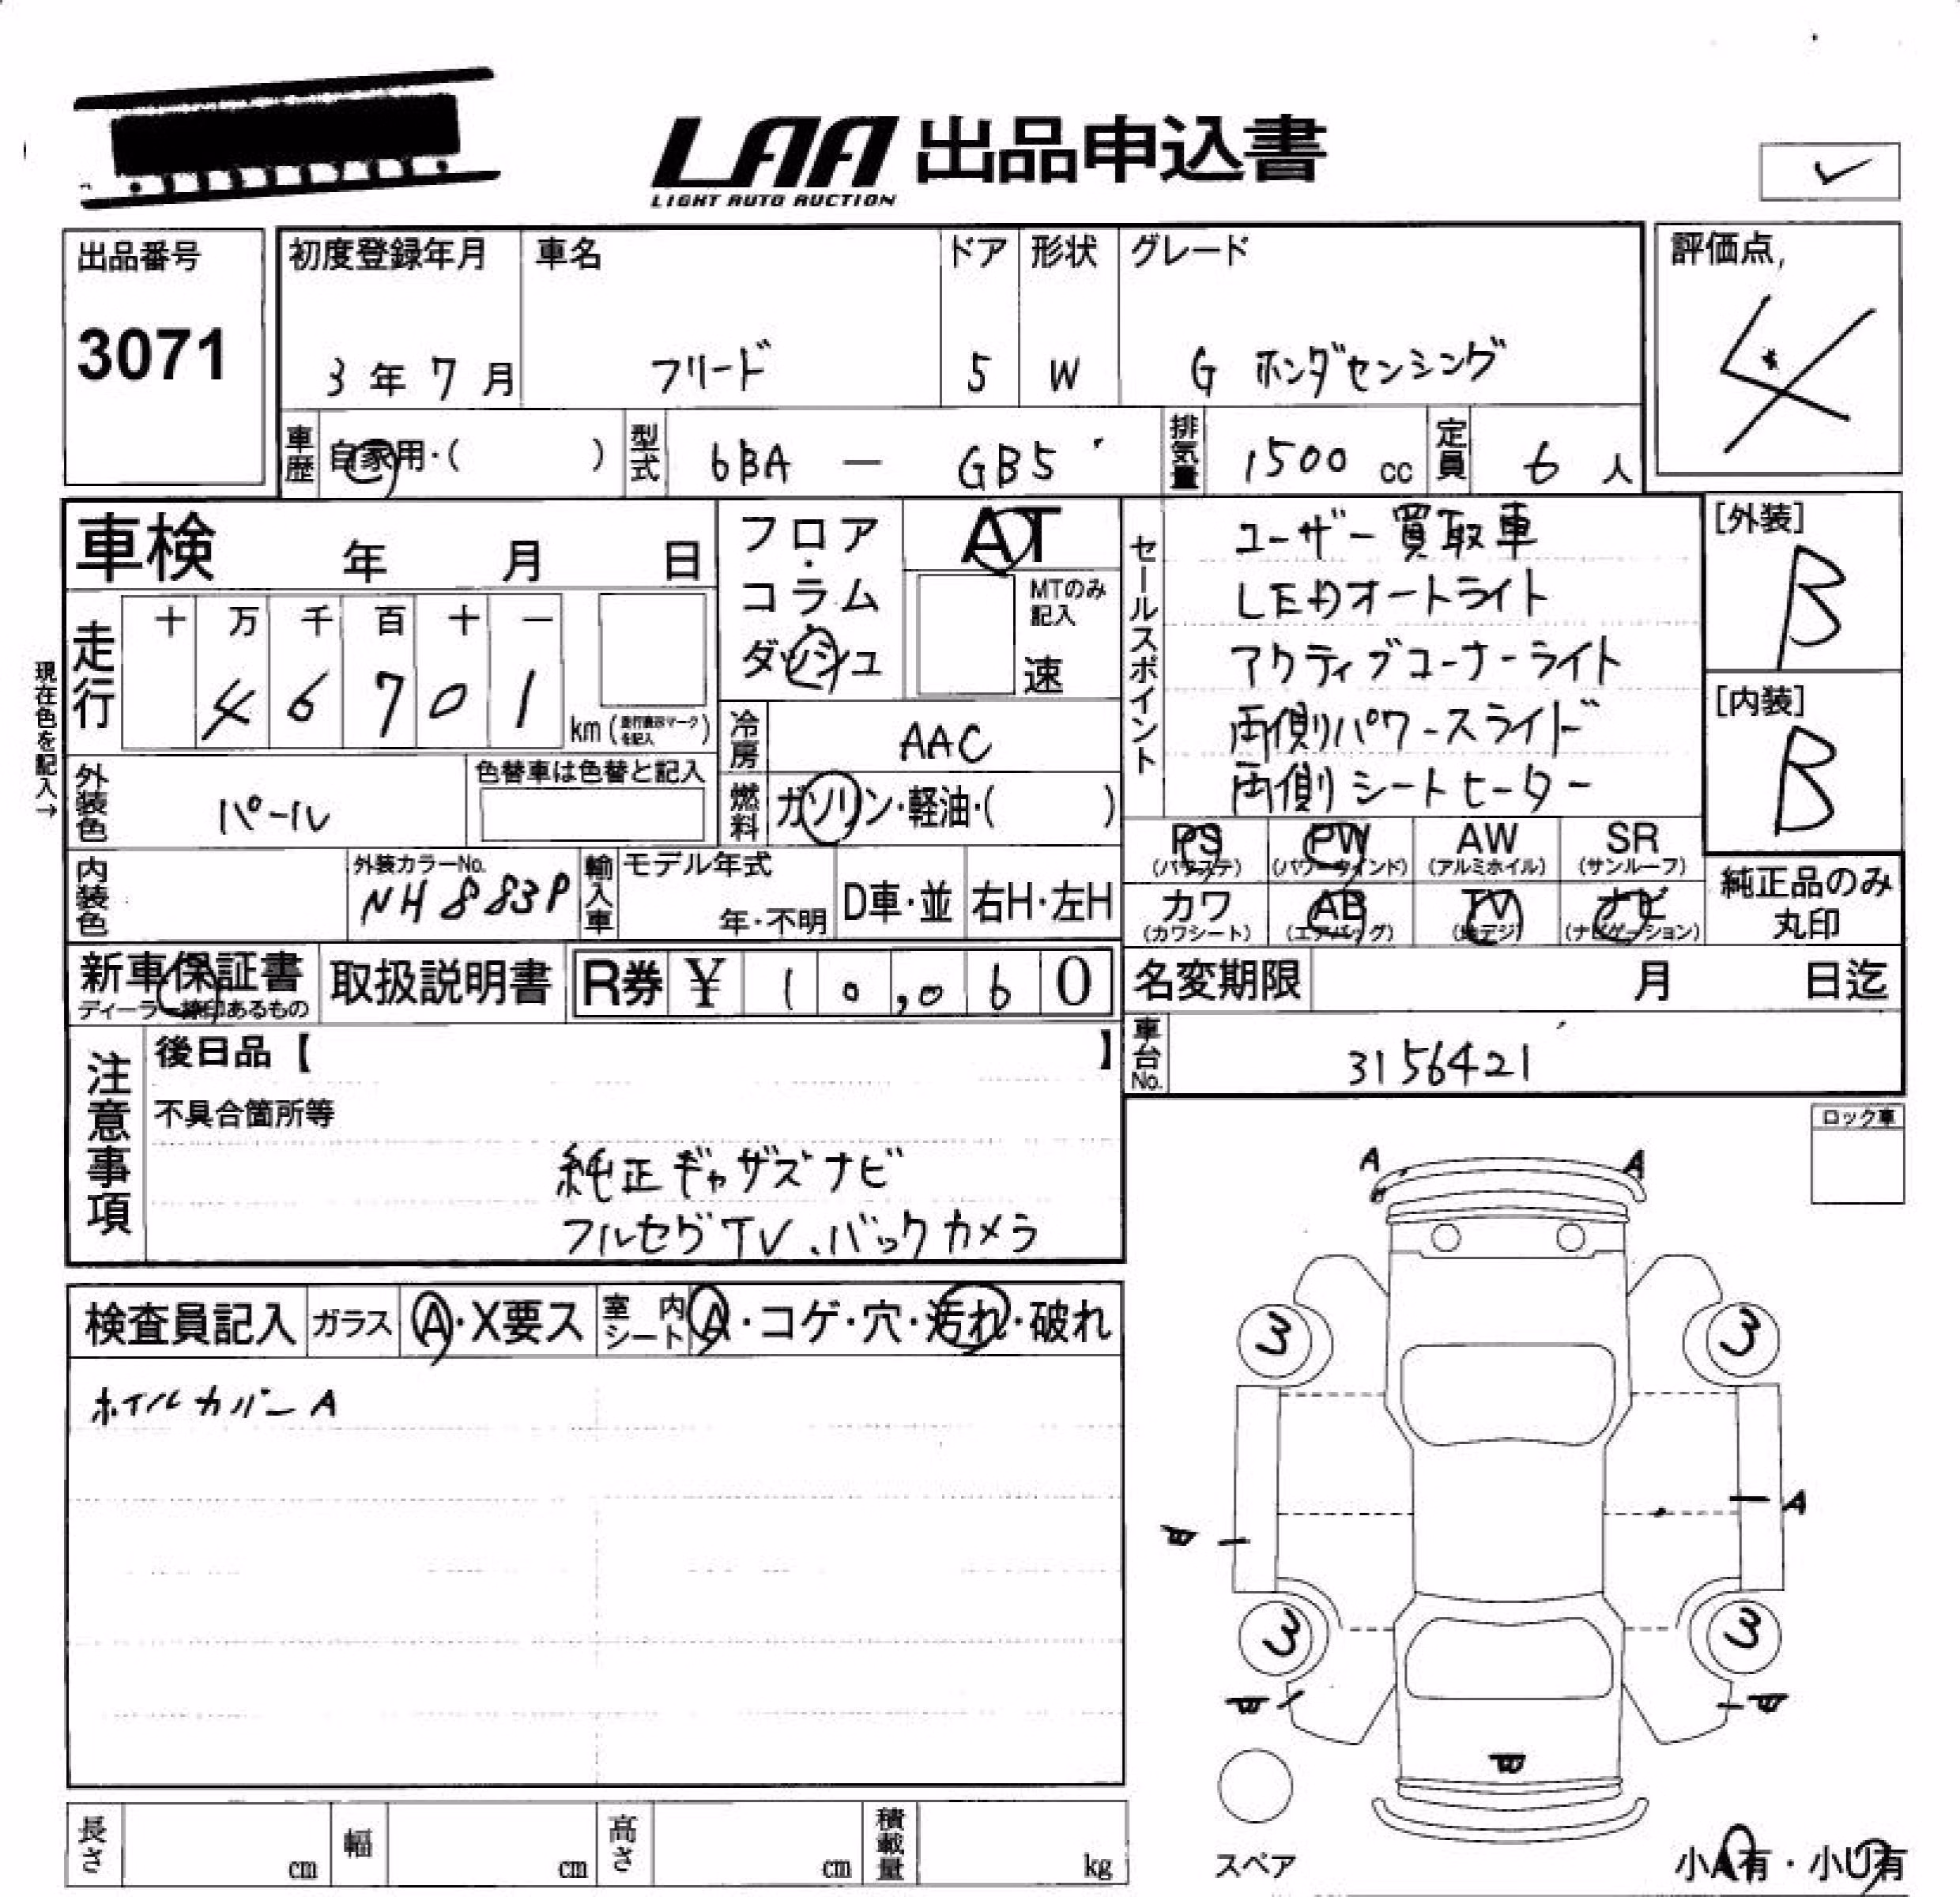 LAA 出品申込書
LIGHT AUTO AUCTION
出品番号
3071
初度登録年月
3年7月
車名
フリード
ドア
5
形状
W
グレード
G ホンダセンシング
評価点
4
車歴
自家用・( )
型式
6BA — GB5
排気量
1500 cc
定員
6人
車検 年 月 日
フロア・コラム・ダッシュ
AT
MTのみ記入
速
セールスポイント
ユーザー買取車
LEDオートライト
アクティブコーナーライト
両側パワースライド
両側シートヒーター
[外装]
B
[内装]
B
現在色を記入→
走行
十 万 千 百 十 一
4 6 7 0 1
km(走行表示マークを記入)
冷房
AAC
燃料
ガソリン・軽油・( )
外装色
パール
色替車は色替と記入
内装色
外装カラーNo.
NH883P
輸入車
モデル年式
年・不明
D車・並
右H・左H
PS
(パワステ)
PW
(パワーウインド)
AW
(アルミホイル)
SR
(サンルーフ)
カワ
(カワシート)
AB
(エアバッグ)
TV
(地デジ)
ナビ
(ナビゲーション)
純正品のみ
丸印
新車保証書
ディーラー捺印あるもの
取扱説明書
R券 ¥ 10,060
名変期限 月 日迄
車台No.
3156421
注意事項
後日品【 】
不具合箇所等
純正ギャザズナビ
フルセグTV.バックカメラ
ロック車
検査員記入
ガラス
A・X要ス
室内シート
A・コゲ・穴・汚れ・破れ
ホイルカバーA
A A
3 3
A
3 3
スペア
小A有・小U有
長さ cm
幅 cm
高さ cm
積載量 kg